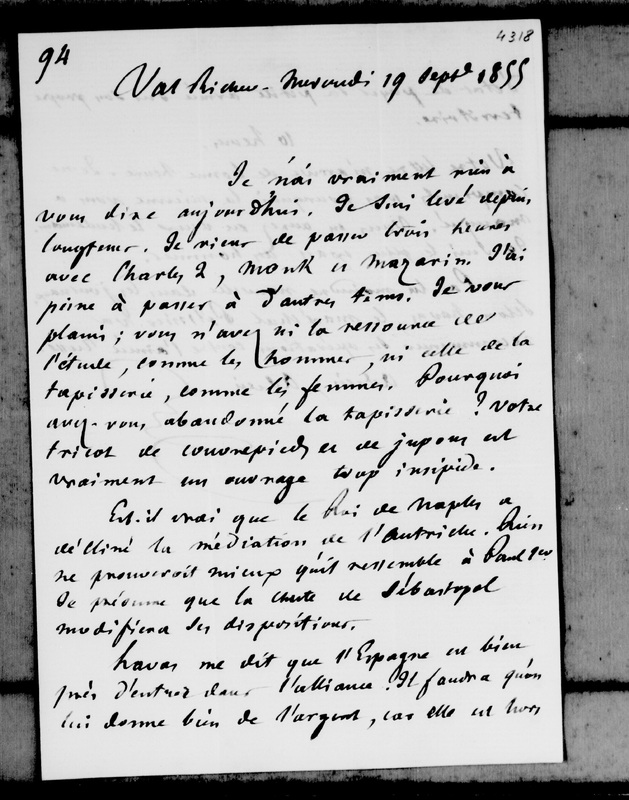 94
4318
Val Richer - Mercredi 19 Septe 1855
Je n'ai vraiment rien à
vous dire aujourd'hui. Je suis levé depuis
longtems. Je viens de passer trois heures
avec Charles 2, Monk et Mazarin. J'ai
peine à passer à d'autres tems. Je vous
plains ; vous n'avez ni la ressource de
l'étude, comme les hommes, ni celle de la
tapisserie, comme les femmes. Pourquoi
avez-vous abandonné la tapisserie ? Votre
tricot de couvrepieds et de jupons est
vraiment un ouvrage trop insipide.
Est-il vrai que le Roi de Naples a
décliné la médiation de l'Autriche. Rien
ne prouveroit mieux qu'il ressemble à Paul 1er
Je présume que la chute de Sébastopol
modifiera ses dispositions.
Havas me dit que l'Espagne est bien
près d'entrer dans l'alliance. Il faudra qu'on
lui donne bien de l'argent, car elle est hors